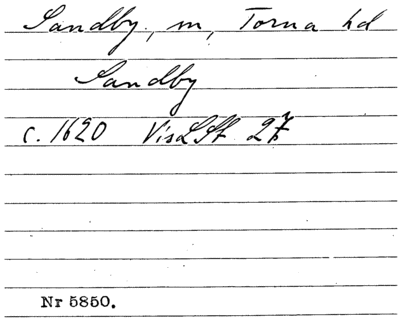 Sandby, m, Torna hd
Sandby
c. 1620 VisLSt 27
Nr 5850.